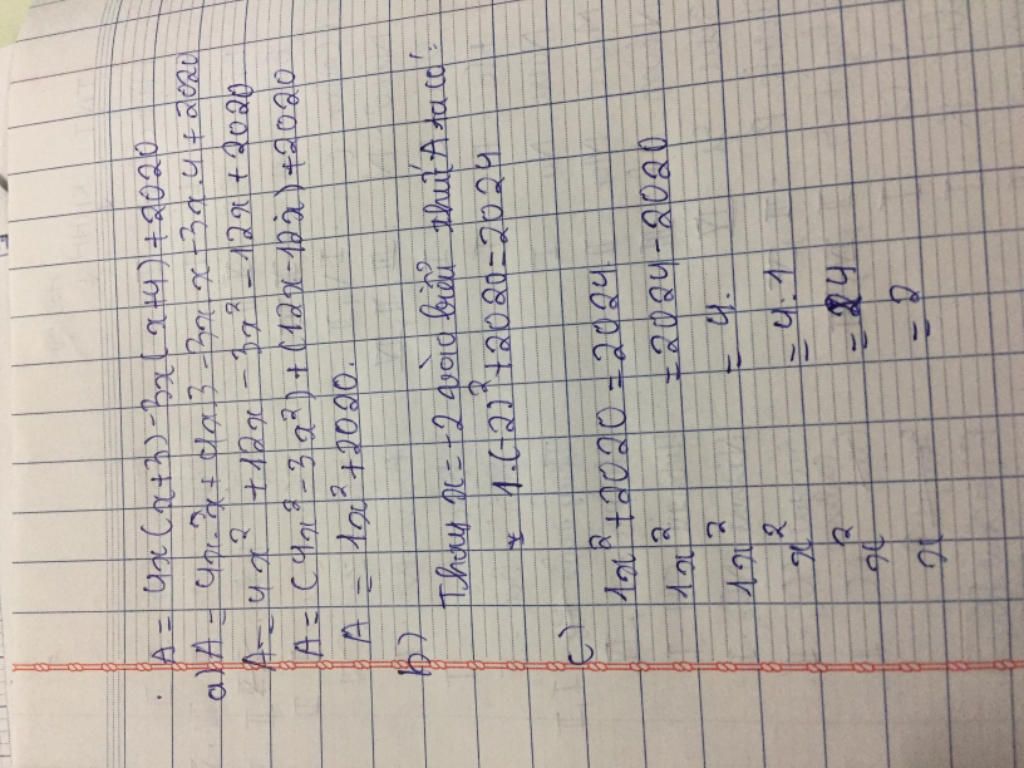 A = 4x(x+3)-3x(x+4)+2020
a) A = 4x.x+4x3-3x.x-3x.4+2020
A = 4x²+12x-3x²-12x+2020
A = (4x²-3x²)+(12x-12x)+2020
A = 1x²+2020.
b) Thay x=-2 vào biểu thức A ta có:
1.(-2)²+2020=2024
c) 1x²+2020=2024
1x² =2024-2020
1x² = 4.
x² =4:1
x² =4
x =2